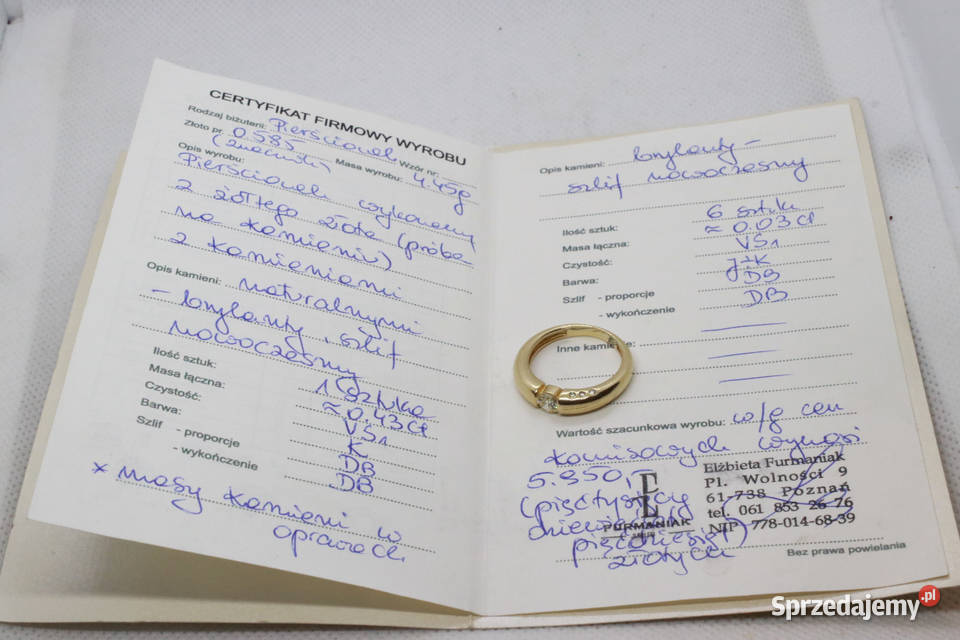 CERTYFIKAT FIRMOWY WYROBU
Rodzaj biżuterii: Pierścionek Wzór nr:
Złoto pr. 0.585 Masa wyrobu: 4.45g
Opis wyrobu:
Pierścionek wykonany
z żółtego złota (próba
na kamieniu)
z kamieniami
Opis kamieni: naturalnymi
- brylanty, szlif
nowoczesny
Ilość sztuk: 1 sztuka
Masa łączna: ≈ 0.43 ct
Czystość: VS1
Barwa: K
Szlif - proporcje DB
- wykończenie DB
* masy kamieni w
oprawach
Opis kamieni: brylanty -
szlif nowoczesny
Ilość sztuk: 6 sztuk
Masa łączna: ≈ 0.03 ct
Czystość: VS1
Barwa: J÷K
Szlif - proporcje DB
- wykończenie DB
Inne kamienie:
Wartość szacunkowa wyrobu: w/g cen
komisowych wynosi
5.950,-
(pięć tysięcy
dziewięćset
pięćdziesiąt)
złotych
FURMANIAK
Elżbieta Furmaniak
Pl. Wolności 9
61-738 Poznań
tel. 061 853 26 76
NIP 778-014-68-39
Bez prawa powielania
Sprzedajemy.pl